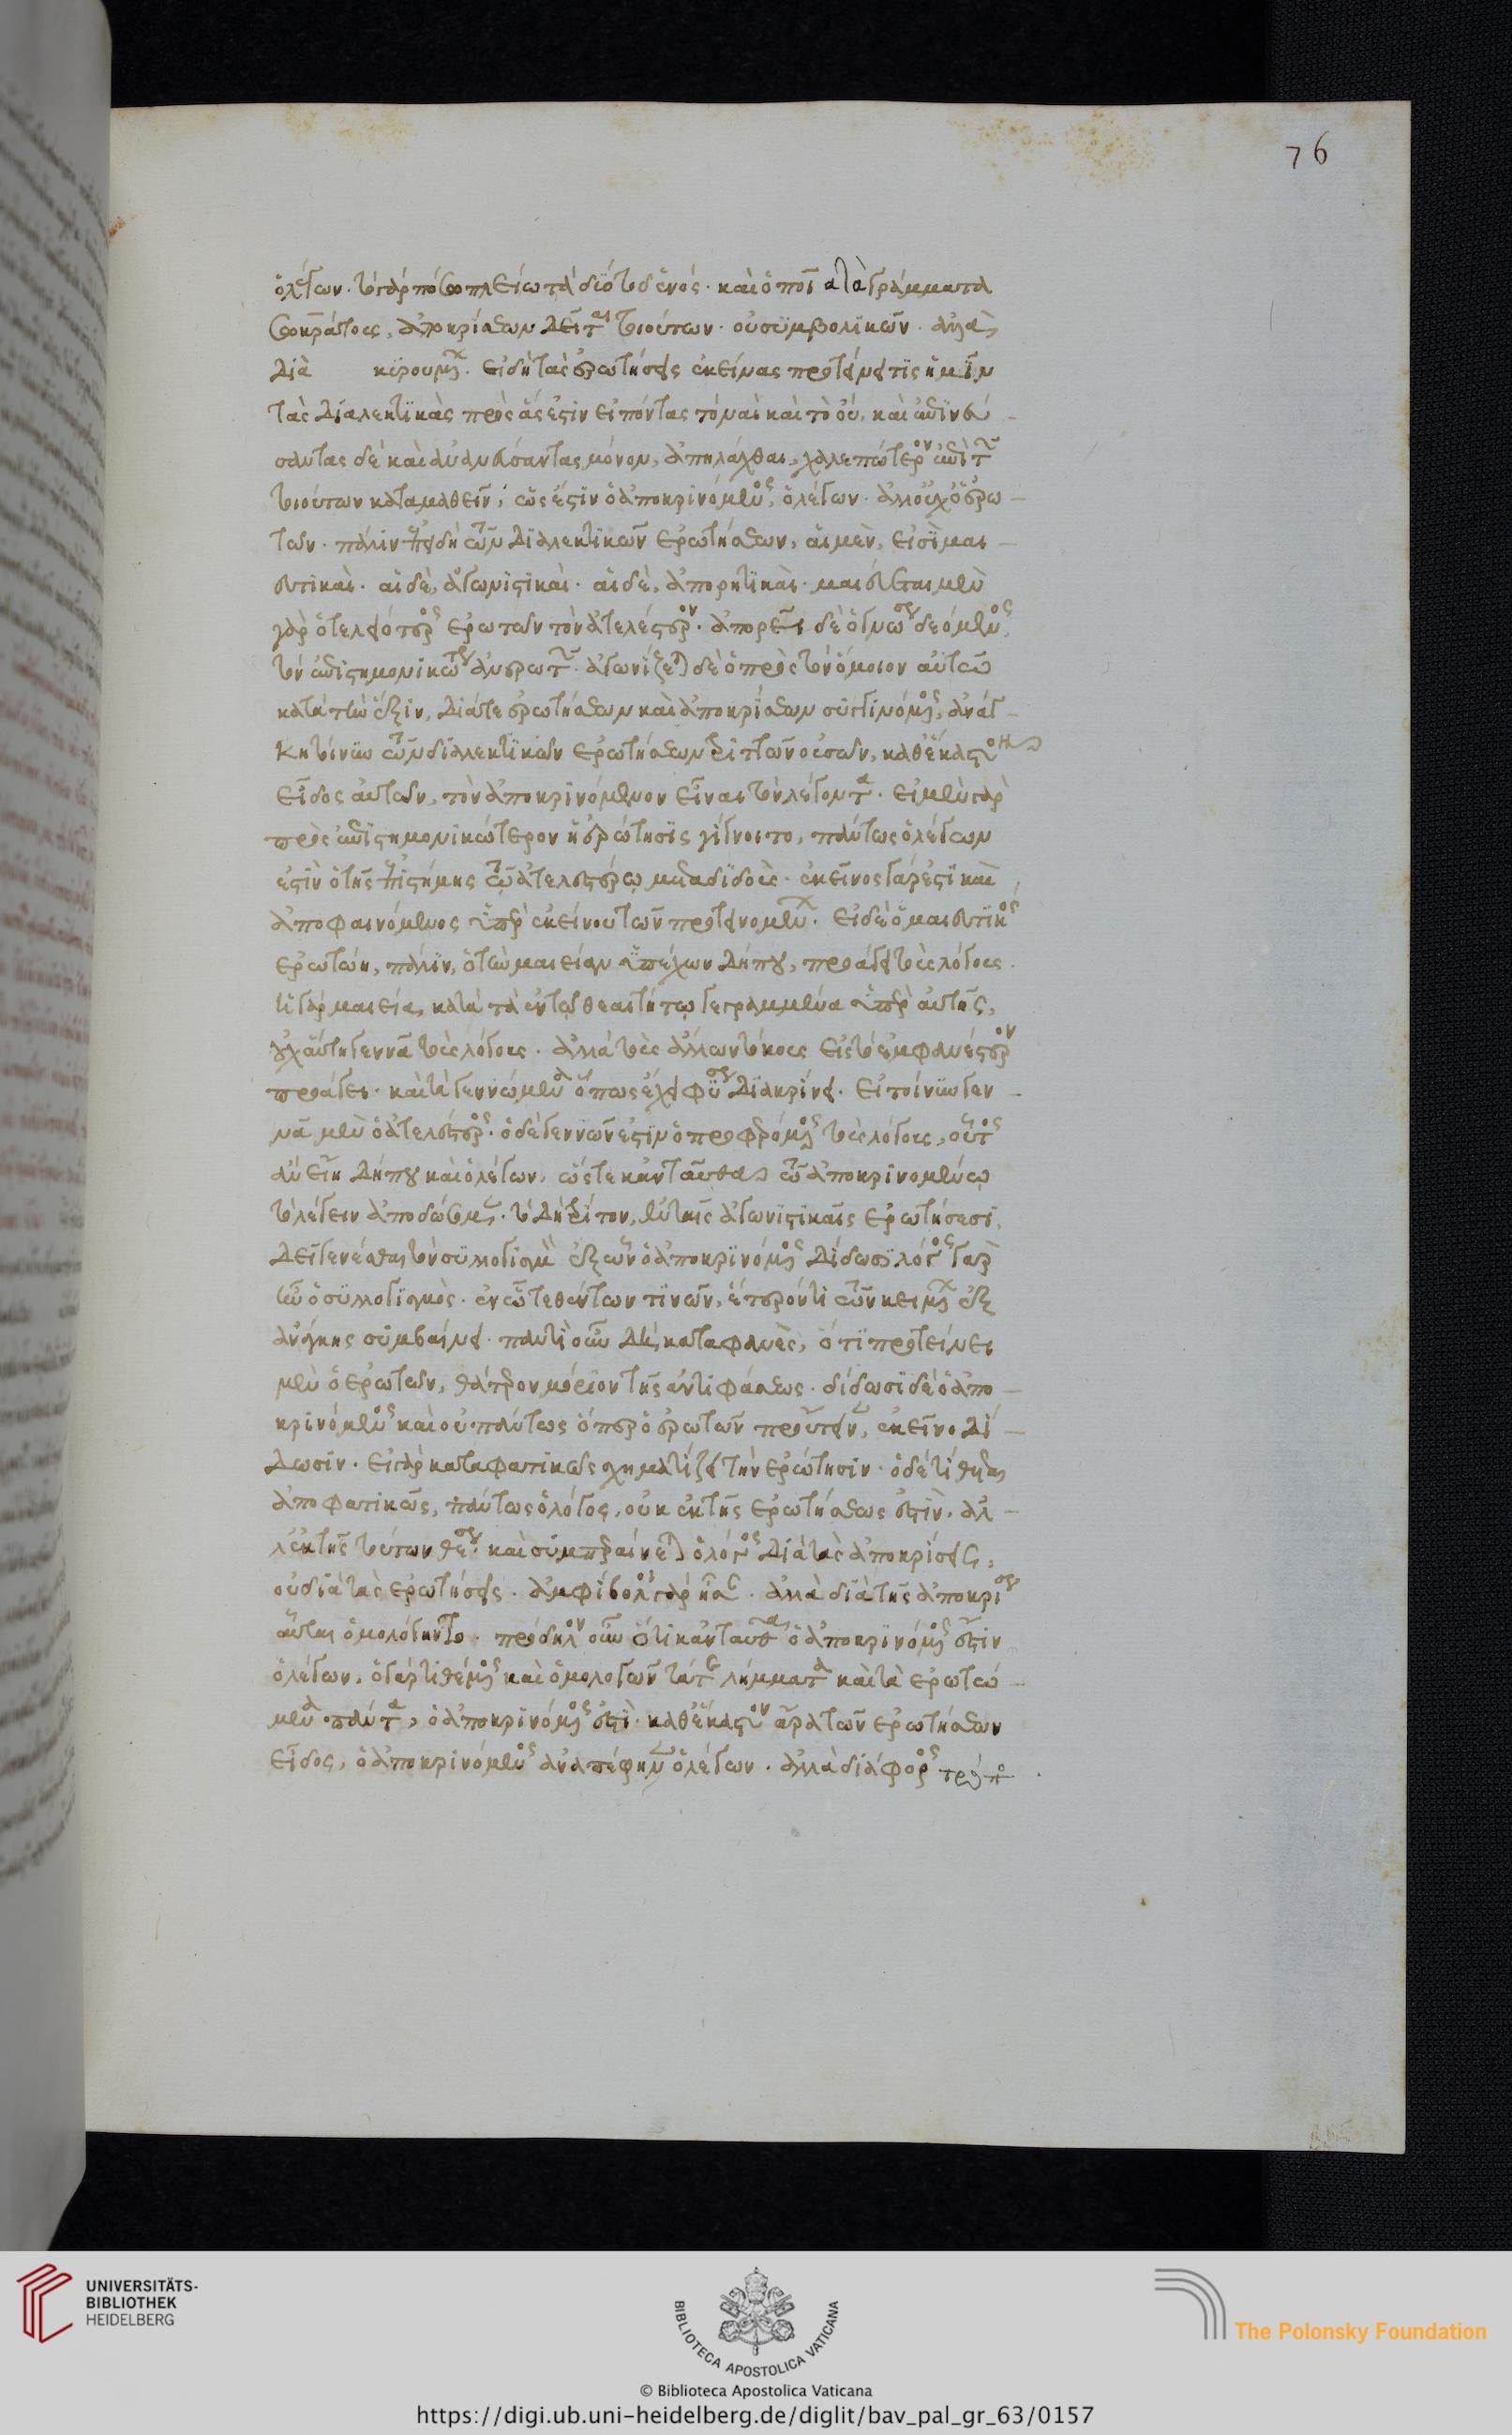 76
ὁ λέγων. τὸ γὰρ πόσο πλείω τὰ δύο τοῦ ἑνός. καὶ ὁποῖα τὰ γράμματα
Σωκράτους, ἀποκρίσεων δεῖται τοιούτων. οὐ συμβολικῶν. ἀλλὰ
διὰ κυρουμένων. εἰ δὴ τὰς ἐρωτήσεις ἐκείνας προτείνει τις ἡμῖν
τὰς διαλεκτικὰς πρὸς ἅς ἐστιν εἰπόντας τὸ ναὶ καὶ τὸ οὐ, καὶ ἐπινεύ
σαντας δὲ καὶ ἀνανεύσαντας μόνον, ἀπηλλάχθαι, χαλεπώτερον ἐπὶ τῶν
τοιούτων καταμαθεῖν, ὡς ἔστιν ὁ ἀποκρινόμενος, ὁ λέγων. ἀλλ' οὐχ ὁ ἐρω
τῶν. πάλιν ἐπειδὴ τῶν διαλεκτικῶν ἐρωτήσεων, αἱ μὲν, εἰσὶ μαι
ευτικαὶ. αἱ δὲ, ἀγωνιστικαὶ. αἱ δὲ, ἀπορητικαὶ. μαιεύεται μὲν
γὰρ ὁ τελειότερος ἐρωτῶν τὸν ἀτελέστερον. ἀπορεῖ δὲ ὁ γνώσεως δεόμενος,
τὸν ἐπιστημονικώτερον ἀνερωτῶν. ἀγωνίζεται δὲ ὁ πρὸς τὸν ὅμοιον αὐτῷ
κατὰ τὴν ἕξιν, διά τε ἐρωτήσεων καὶ ἀποκρίσεων συγγινόμενος, ἀνάγ
κη τοίνυν τῶν διαλεκτικῶν ἐρωτήσεων τριττῶν οὐσῶν, καθ' ἕκαστον
εἶδος αὐτῶν, τὸν ἀποκρινόμενον εἶναι τὸν λέγοντα. εἰ μὲν γὰρ
πρὸς ἐπιστημονικώτερον ἡ ἐρώτησις γίγνοιτο, πάντως ὁ λέγων
ἐστὶν ὁ τῆς ἐπιστήμης τῷ ἀτελεστέρῳ μεταδιδοὺς. ἐκεῖνος γάρ ἐστι καὶ
ἀποφαινόμενος ὑπὲρ ἐκείνου τῶν προτεινομένων. εἰ δὲ ὁ μαιευτικὸς
ἐρωτώη, πάλιν, ὁ τὴν μαιείαν ὑπέχων δήπου, προάγει τοὺς λόγους.
τί γὰρ μαιεία, κατὰ τὰ ἐν τῷ θεαιτήτῳ γεγραμμένα ὑπὲρ αὐτῆς,
οὐχ αὕτη γεννᾶ τοὺς λόγους. ἀλλὰ τοὺς ἄλλων τόκους εἰς τὸ ἐμφανέστερον
προάγει. καὶ τὰ γεννώμενα ὅπως ἔχει φύσεως διακρίνει. εἰ τοίνυν γεν
νᾶ μὲν ὁ ἀτελέστερος. ὁ δὲ γεννῶν ἐστιν ὁ προφερόμενος τοὺς λόγους, οὗτος
ἂν εἴη δήπου καὶ ὁ λέγων, ὥστε κἀνταῦθα τῷ ἀποκρινομένῳ
τὸ λέγειν ἀποδώσομεν. τὸ δὴ τρίτον, ἐν ταῖς ἀγωνιστικαῖς ἐρωτήσεσι,
δεῖ γενέσθαι τὸν συλλογισμὸν ἐξ ὧν ὁ ἀποκρινόμενος δίδωσι λόγος γάρ
ἐστιν ὁ συλλογισμὸς. ἐν ᾧ τεθέντων τινῶν, ἕτερόν τι τῶν κειμένων ἐξ
ἀνάγκης συμβαίνει. παντὶ οὖν δὴ, καταφανὲς, ὅτι προτείνει
μὲν ὁ ἐρωτῶν, θάτερον μόριον τῆς ἀντιφάσεως. δίδωσι δὲ ὁ ἀπο
κρινόμενος καὶ οὐ πάντως ὅπερ ὁ ἐρωτῶν προὔτεινεν, ἐκεῖνο δί
δωσιν. εἰ γὰρ καταφατικῶς σχηματίζει τὴν ἐρώτησιν. ὁ δὲ τίθησιν
ἀποφατικῶς, πάντως ὁ λόγος, οὐκ ἐκ τῆς ἐρωτήσεως ἐστὶν, ἀλ
λ' ἐκ τῆς τούτων θέσεως. καὶ συμπεραίνεται ὁ λόγος διὰ τὰς ἀποκρίσεις,
οὐ διὰ τὰς ἐρωτήσεις. ἀμφίβολοι γὰρ ἦσαν. ἀλλὰ διὰ τῆς ἀποκρίσεως
αὗται ὁμολόγηντο. πρόδηλον οὖν ὅτι κἀνταῦθα ὁ ἀποκρινόμενος ἐστιν
ὁ λέγων, ὁ γὰρ τιθέμενος καὶ ὁμολογῶν τά τε λήμματα καὶ τὰ ἐρωτώ
μενα πάντα, ὁ ἀποκρινόμενος ἐστὶ. καθ' ἕκαστον ἄρα τῶν ἐρωτήσεων
εἶδος, ὁ ἀποκρινόμενος ἀναπέφηνεν ὁ λέγων. ἀλλὰ διάφορος τρόπος.
UNIVERSITÄTS-
BIBLIOTHEK
HEIDELBERG
BIBLIOTECA APOSTOLICA VATICANA
The Polonsky Foundation
© Biblioteca Apostolica Vaticana
https://digi.ub.uni-heidelberg.de/diglit/bav_pal_gr_63/0157